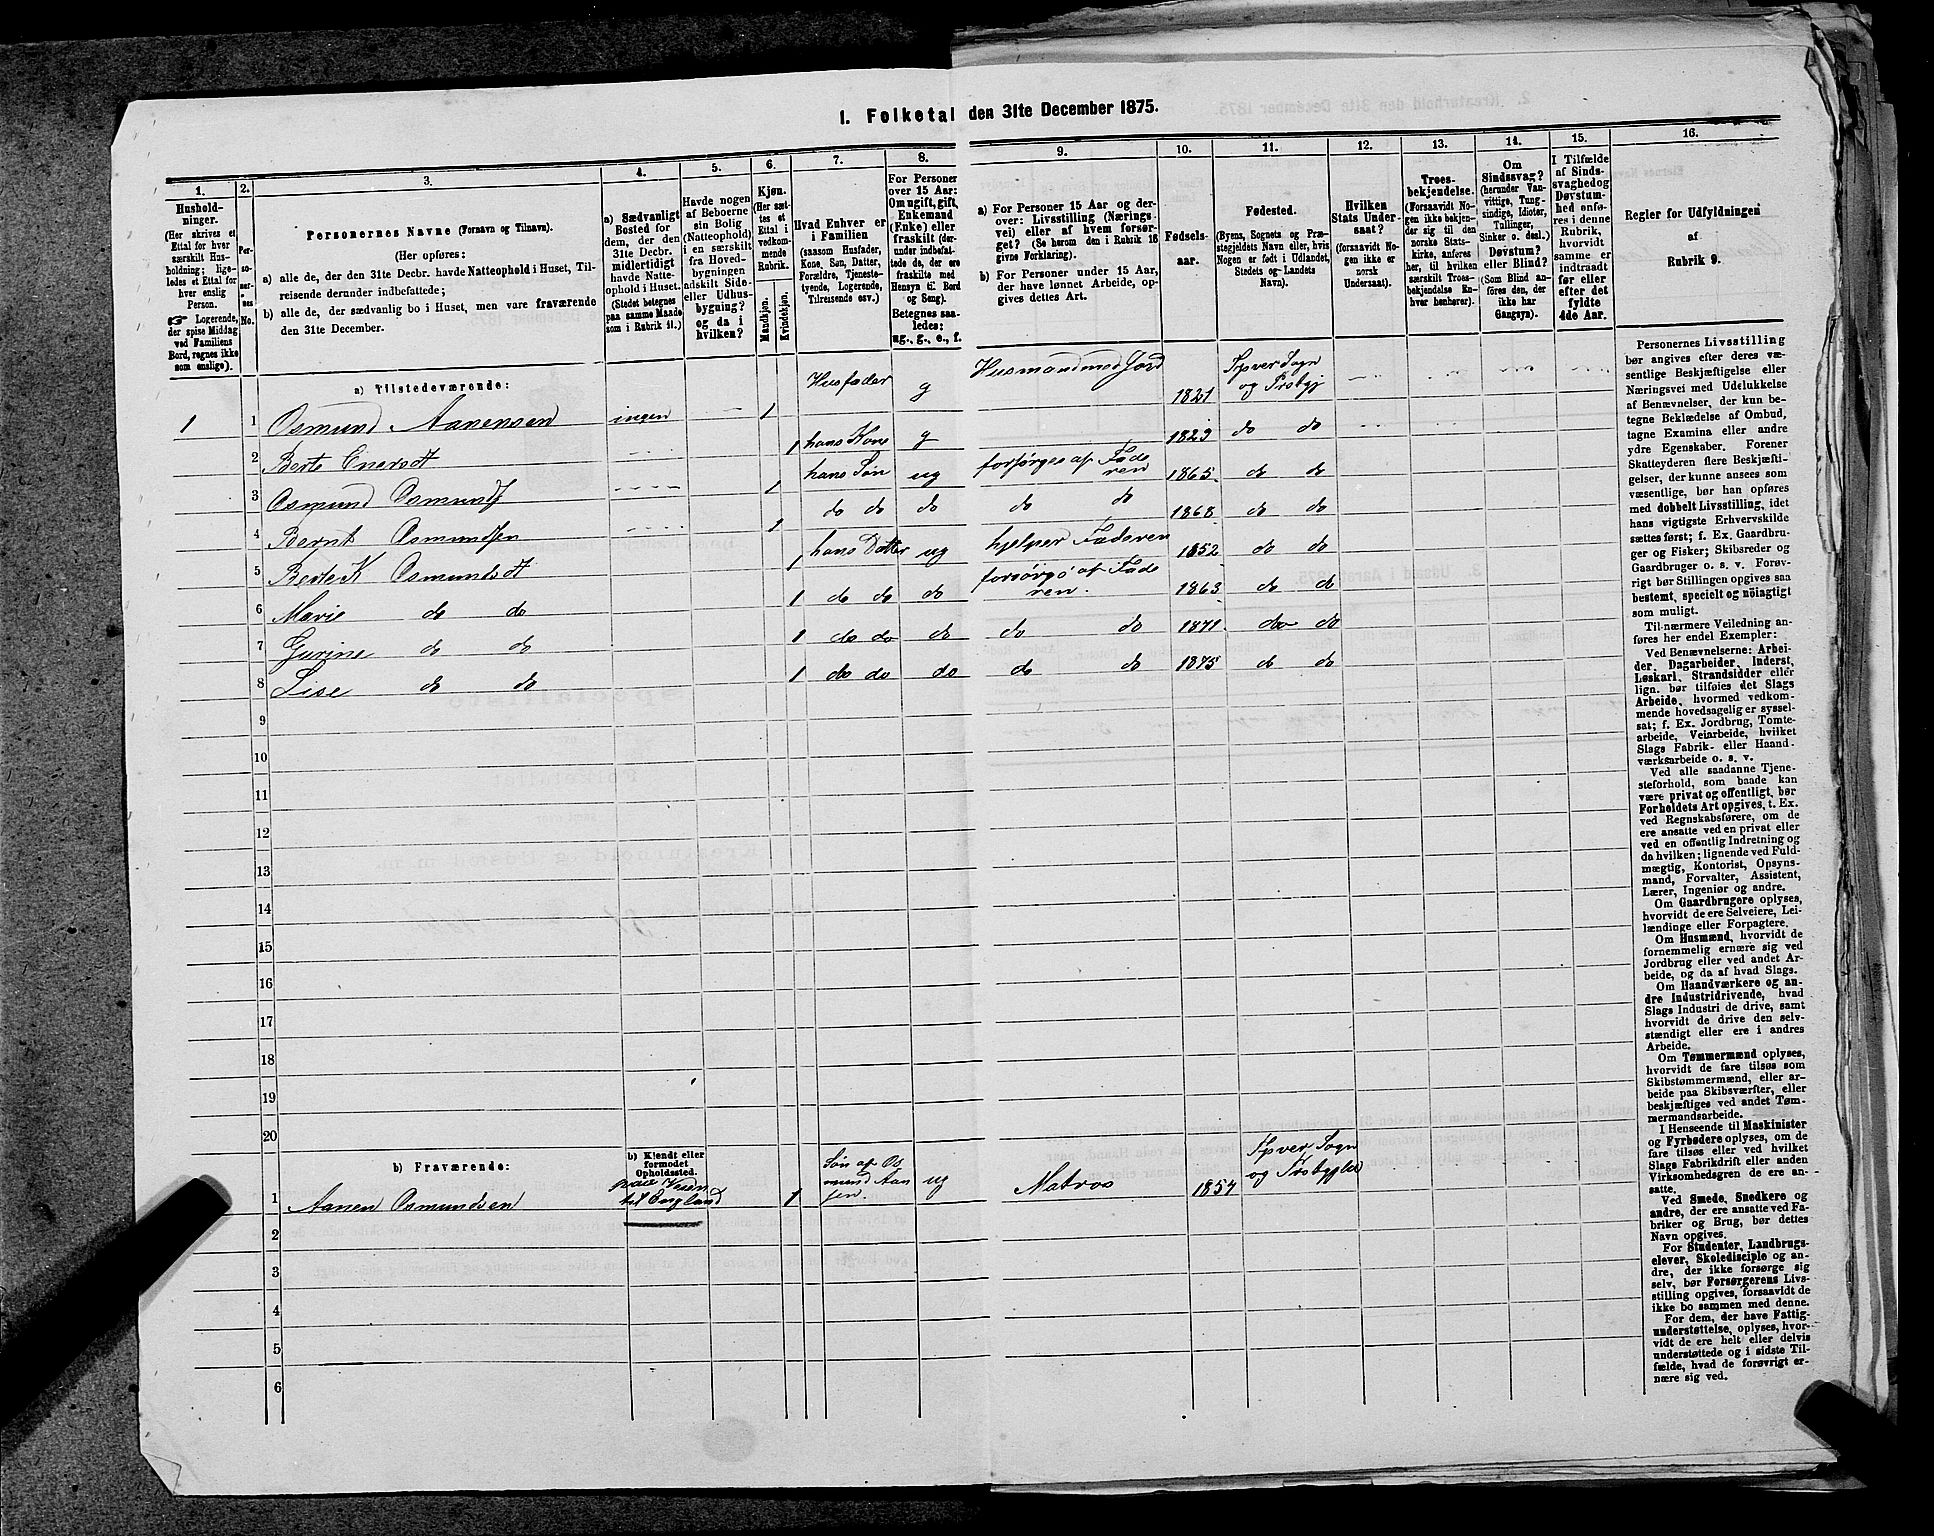 1. Folketal den 31te December 1875.
1.
Hushold-
ninger.
(Her skrives et
Ettal for hver
særskilt Hus-
holdning; lige-
ledes et Ettal for
hver enslig
Person.
☞ Logerende,
der spise Middag
ved Familiens
Bord, regnes ikke
som enslige).
2.
Per-
so-
ner-
nes
No.
3.
Personernes Navne (Fornavn og Tilnavn).
(Her opføres:
a) alle de, der den 31te Decbr. havde Natteophold i Huset, Til-
reisende derunder indbefattede;
b) alle de, der sædvanlig bo i Huset, men vare fraværende
den 31te December.
4.
a) Sædvanligt
Bosted for
dem, der den
31te Decbr.
midlertidigt
havde Natte-
ophold i Huset.
(Stedet betegnes
paa samme Maade
som i Rubrik 11.)
5.
Havde nogen
af Beboerne
sin Bolig
(Natteophold)
i en særskilt
fra Hoved-
bygningen
adskilt Side-
eller Udhus-
bygning?
og da i
hvilken?
6.
Kjøn.
(Her sæt-
tes et
Ettal i
vedkom-
mende
Rubrik.
Mandkjøn.
Kvindekjøn.
7.
Hvad Enhver er
i Familien
(saasom Husfader,
Kone, Søn, Datter,
Forældre, Tjeneste-
tyende, Logerende,
Tilreisende osv.)
8.
For Personer
over 15 Aar:
Om ugift, gift,
Enkemand
(Enke) eller
fraskilt (der-
under indbefat-
tede de, der ere
fraskilte med
Hensyn til Bord
og Seng).
Betegnes saa-
ledes:
ug., g., e., f.
9.
a) For Personer 15 Aar og der-
over: Livsstilling (Nærings-
vei) eller af hvem forsør-
get? (Se herom den i Rubrik 16
givne Forklaring).
b) For Personer under 15 Aar,
der have lønnet Arbeide, op-
gives dettes Art.
10.
Fødsels-
aar.
11.
Fødested.
(Byens, Sognets og Præ-
stegjeldets Navn eller, hvis
Nogen er født i Udlandet,
Stedets og Landets
Navn).
12.
Hvilken
Stats Under-
saat?
(forsaavidt No-
gen ikke er
norsk
Undersaat).
13.
Troes-
bekjendelse.
(Forsaavidt No-
gen ikke bekjen-
der sig til den
norske Stats-
kirke, anføres
her, til hvilken
særskilt Troes-
bekjendelse En-
hver henhører).
14.
Om
Sindssvag?
(herunder Van-
vittige, Tung-
sindige, Idioter,
Tullinger,
Sinker o. desl.)
Døvstum?
eller Blind?
(Som Blind an-
føres den, der
ikke har
Gangsyn).
15.
I Tilfælde
af Sinds-
svaghed og
Døvstum-
hed anfø-
res i denne
Rubrik,
hvorvidt
samme er
indtraadt
før eller
efter det
fyldte
4de Aar.
16.
Regler for Udfyldningen
af
Rubrik 9.
a) Tilstedeværende:
1 1 Osmund Aanensen ingen 1 Husfader g Husmand med Jord 1821 Sogn og
2 Berte 1 hans Kone g 1823 do do
3 Osmund Osmunds 1 hans Søn ug forsørges af Faderen 1865 do do
4 Bernt Osmundsen 1 do do do do do 1868 do do
5 Berte K Osmundsdt 1 hans Datter ug hjelper Faderen 1852 do do
6 Marie do do 1 do do do forsørgs af Faderen. 1863 do do
7 Gurine do do 1 do do do do do 1871 do do
8 Lise do do 1 do do do do do 1875 do do
9
10
11
12
13
14
15
16
17
18
19
20
b) Fraværende:
b) Kjendt eller
formodet
Opholdssted.
1 Aanen Osmundsen paa Reisen til England 1 Søn af Osmund Aansen. ug Matros 1854 Sogn og
2
3
4
5
6
Personernes Livsstilling
bør angives efter deres væ-
sentlige Beskjæftigelse eller
Næringsvei med Udelukkelse
af Benævnelser, der kun be-
tegne Beklædelse af Ombud,
tagne Examina eller andre
ydre Egenskaber. Forener
Skatteyderen flere Beskjæfti-
gelser, der kunne ansees som
væsentlige, bør han opføres
med dobbelt Livsstilling, idet
hans vigtigste Erhvervskilde
sættes først; f. Ex. Gaardbru-
ger og Fisker; Skibsreder og
Gaardbruger o. s. v. Forøv-
rigt bør Stillingen opgives saa
bestemt, specielt og nöiagtigt
som muligt.
Til nærmere Veiledning an-
føres her endel Exempler:
Ved Benævnelserne: Arbei-
der, Dagarbeider, Inderst,
Løskarl, Strandsidder eller
lign. bør tilføies det Slags
Arbeide, hvormed vedkom-
mende hovedsagelig er syssel-
sat; f. Ex. Jordbrug, Tomte-
arbeide, Veiarbeide, hvilket
Slags Fabrik- eller Haand-
værksarbeide o. s. v.
Ved alle saadanne Tjene-
steforhold, som baade kan
være privat og offentligt, bør
Forholdets Art opgives, t. Ex.
ved Regnskabsførere, om de
ere ansatte ved en privat eller
ved en offentlig Indretning og
da hvilken; lignende ved Fuld-
mægtig, Kontorist, Opsyns-
mand, Forvalter, Assistent,
Lærer, Ingeniør og andre.
Om Gaardbrugere oplyses,
hvorvidt de ere Selveiere, Lei-
lændinge eller Forpagtere.
Om Husmænd, hvorvidt de
fornemmelig ernære sig ved
Jordbrug eller ved andet Ar-
beide, og da af hvad Slags.
Om Haandværkere og an-
dre Industridrivende, hvad
Slags Industri de drive, samt
hvorvidt de drive den selv-
stændigt eller ere i andres
Arbeide.
Om Tømmermænd oplyses,
hvorvidt de fare tilsøs som
Skibstømmermænd, eller ar-
beide paa Skibsværfter, eller
beskjæftiges ved andet Tøm-
mermandsarbeide.
I Henseende til Maskinister
og Fyrbødere oplyses, om de
fare tilsøs eller ved hvilket
Slags Fabrikdrift eller anden
Virksomhedsgren de ere an-
satte.
Ved Smede, Snedkere og
andre, der ere ansatte ved Fa-
briker og Brug, bør dettes
Navn opgives.
For Studenter, Landbrugs-
elever, Skoledisciple og an-
dre, der ikke forsørge sig
selv, bør Forsørgerens Livs-
stilling opgives, forsaavidt de
ikke bo sammen med denne.
For dem, der have Fattig-
understøttelse, oplyses, hvor-
vidt de ere helt eller delvis
understøttede og i sidste Til-
fælde, hvad de forøvrigt er-
nære sig ved.